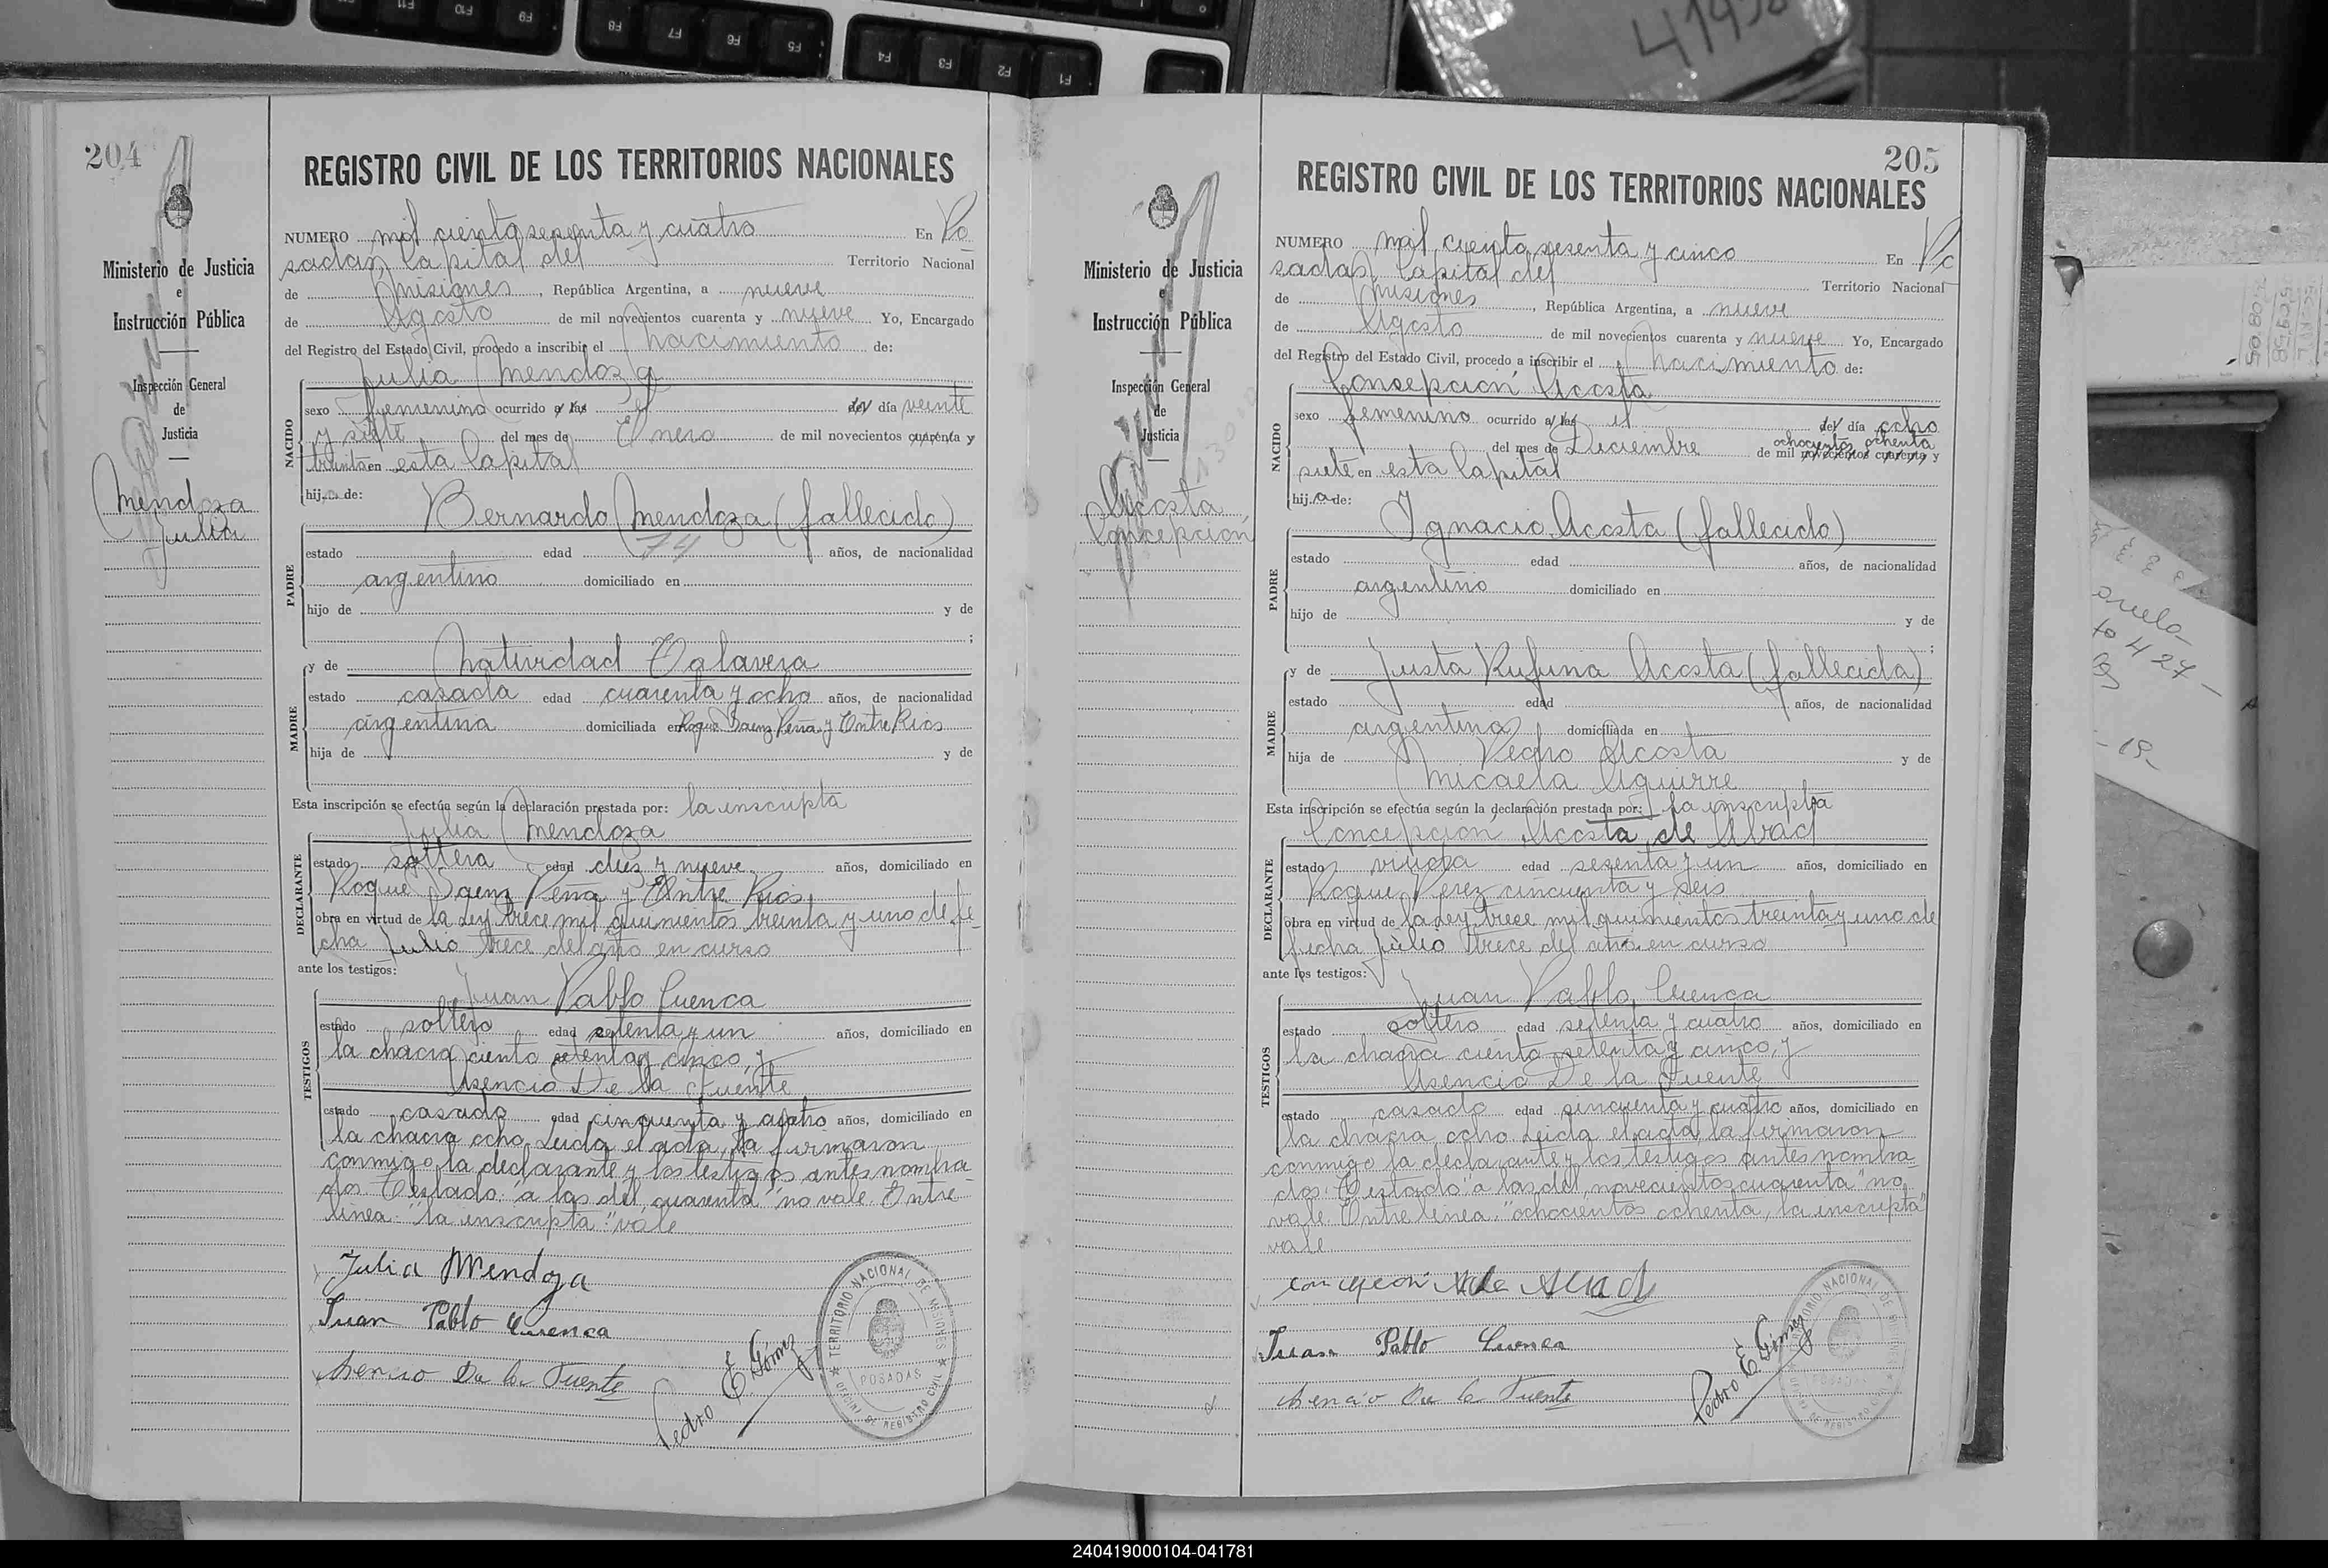 F12 F11 F10 F9 F8 F7 F6 F5 F4 F3 F2 F1
204
REGISTRO CIVIL DE LOS TERRITORIOS NACIONALES
Ministerio de Justicia
e
Instrucción Pública
Inspección General
de
Justicia
Mendoza
Julia
NUMERO mil ciento sesenta y cuatro En Po
sadas Capital del Territorio Nacional
de Misiones, República Argentina, a nueve
de Agosto de mil novecientos cuarenta y nueve Yo, Encargado
del Registro del Estado Civil, procedo a inscribir el Nacimiento de:
Julia Mendoza
NACIDO
sexo femenino ocurrido a las el del día veinte
y siete del mes de Enero de mil novecientos cuarenta y
treinta en esta Capital
hija de:
Bernardo Mendoza (fallecido)
PADRE
estado edad 74 años, de nacionalidad
argentino domiciliado en
hijo de y de
;
y de Natividad Talavera
MADRE
estado casada edad cuarenta y ocho años, de nacionalidad
argentina domiciliada en Roque Saenz Peña y Entre Rios
hija de y de
Esta inscripción se efectúa según la declaración prestada por: la inscripta
Julia Mendoza
DECLARANTE
estado soltera edad diez y nueve años, domiciliado en
Roque Saenz Peña y Entre Rios
obra en virtud de la Ley trece mil quinientos treinta y uno de fe
cha Julio trece del año en curso
ante los testigos:
Juan Pablo Cuenca
TESTIGOS
estado soltero edad setenta y un años, domiciliado en
la chacra ciento setenta y cinco, y
Asencio De la Fuente
estado casado edad cincuenta y cuatro años, domiciliado en
la chacra ocho. Leida el acta, la firmaron
conmigo la declarante y los testigos antes nombra
dos. Testado: "a las del, cuarenta" no vale. Entre
linea: "la inscripta" vale
Julia Mendoza
Juan Pablo Cuenca
Asencio De la Fuente
Pedro E. Gómez
TERRITORIO NACIONAL DE MISIONES
POSADAS
OFICINA DE REGISTRO CIVIL
205
REGISTRO CIVIL DE LOS TERRITORIOS NACIONALES
Ministerio de Justicia
e
Instrucción Pública
Inspección General
de
Justicia
Acosta
Concepción
NUMERO mil ciento sesenta y cinco En Po
sadas Capital del Territorio Nacional
de Misiones, República Argentina, a nueve
de Agosto de mil novecientos cuarenta y nueve Yo, Encargado
del Registro del Estado Civil, procedo a inscribir el Nacimiento de:
Consepción Acosta
NACIDO
sexo femenino ocurrido a las el del día ocho
ochocientos ochenta
del mes de Diciembre de mil novecientos cuarenta y
siete en esta Capital
hija de:
Ignacio Acosta (fallecido)
PADRE
estado edad años, de nacionalidad
argentino domiciliado en
hijo de y de
;
y de Justa Rufina Acosta (fallecida)
MADRE
estado edad años, de nacionalidad
argentina domiciliada en
hija de Pedro Acosta y de
Micaela Aguirre
Esta inscripción se efectúa según la declaración prestada por: la inscripta
Concepción Acosta de Abad
DECLARANTE
estado viuda edad sesenta y un años, domiciliado en
Roque Perez cincuenta y seis
obra en virtud de la ley trece mil quinientos treinta y uno de
fecha Julio trece del año en curso
ante los testigos:
Juan Pablo Cuenca
TESTIGOS
estado soltero edad setenta y cuatro años, domiciliado en
la chacra ciento setenta y cinco, y
Asencio De la Fuente
estado casado edad cincuenta y cuatro años, domiciliado en
la chacra ocho. Leida el acta, la firmaron
conmigo la declarante y los testigos antes nombra
dos. Testado "a las del, novecientos cuarenta" no
vale. Entre linea: "ochocientos ochenta, la inscripta"
vale
Concepcion A de Abad
Juan Pablo Cuenca
Asencio De la Fuente
Pedro E. Gómez
TERRITORIO NACIONAL DE MISIONES
POSADAS
240419000104-041781